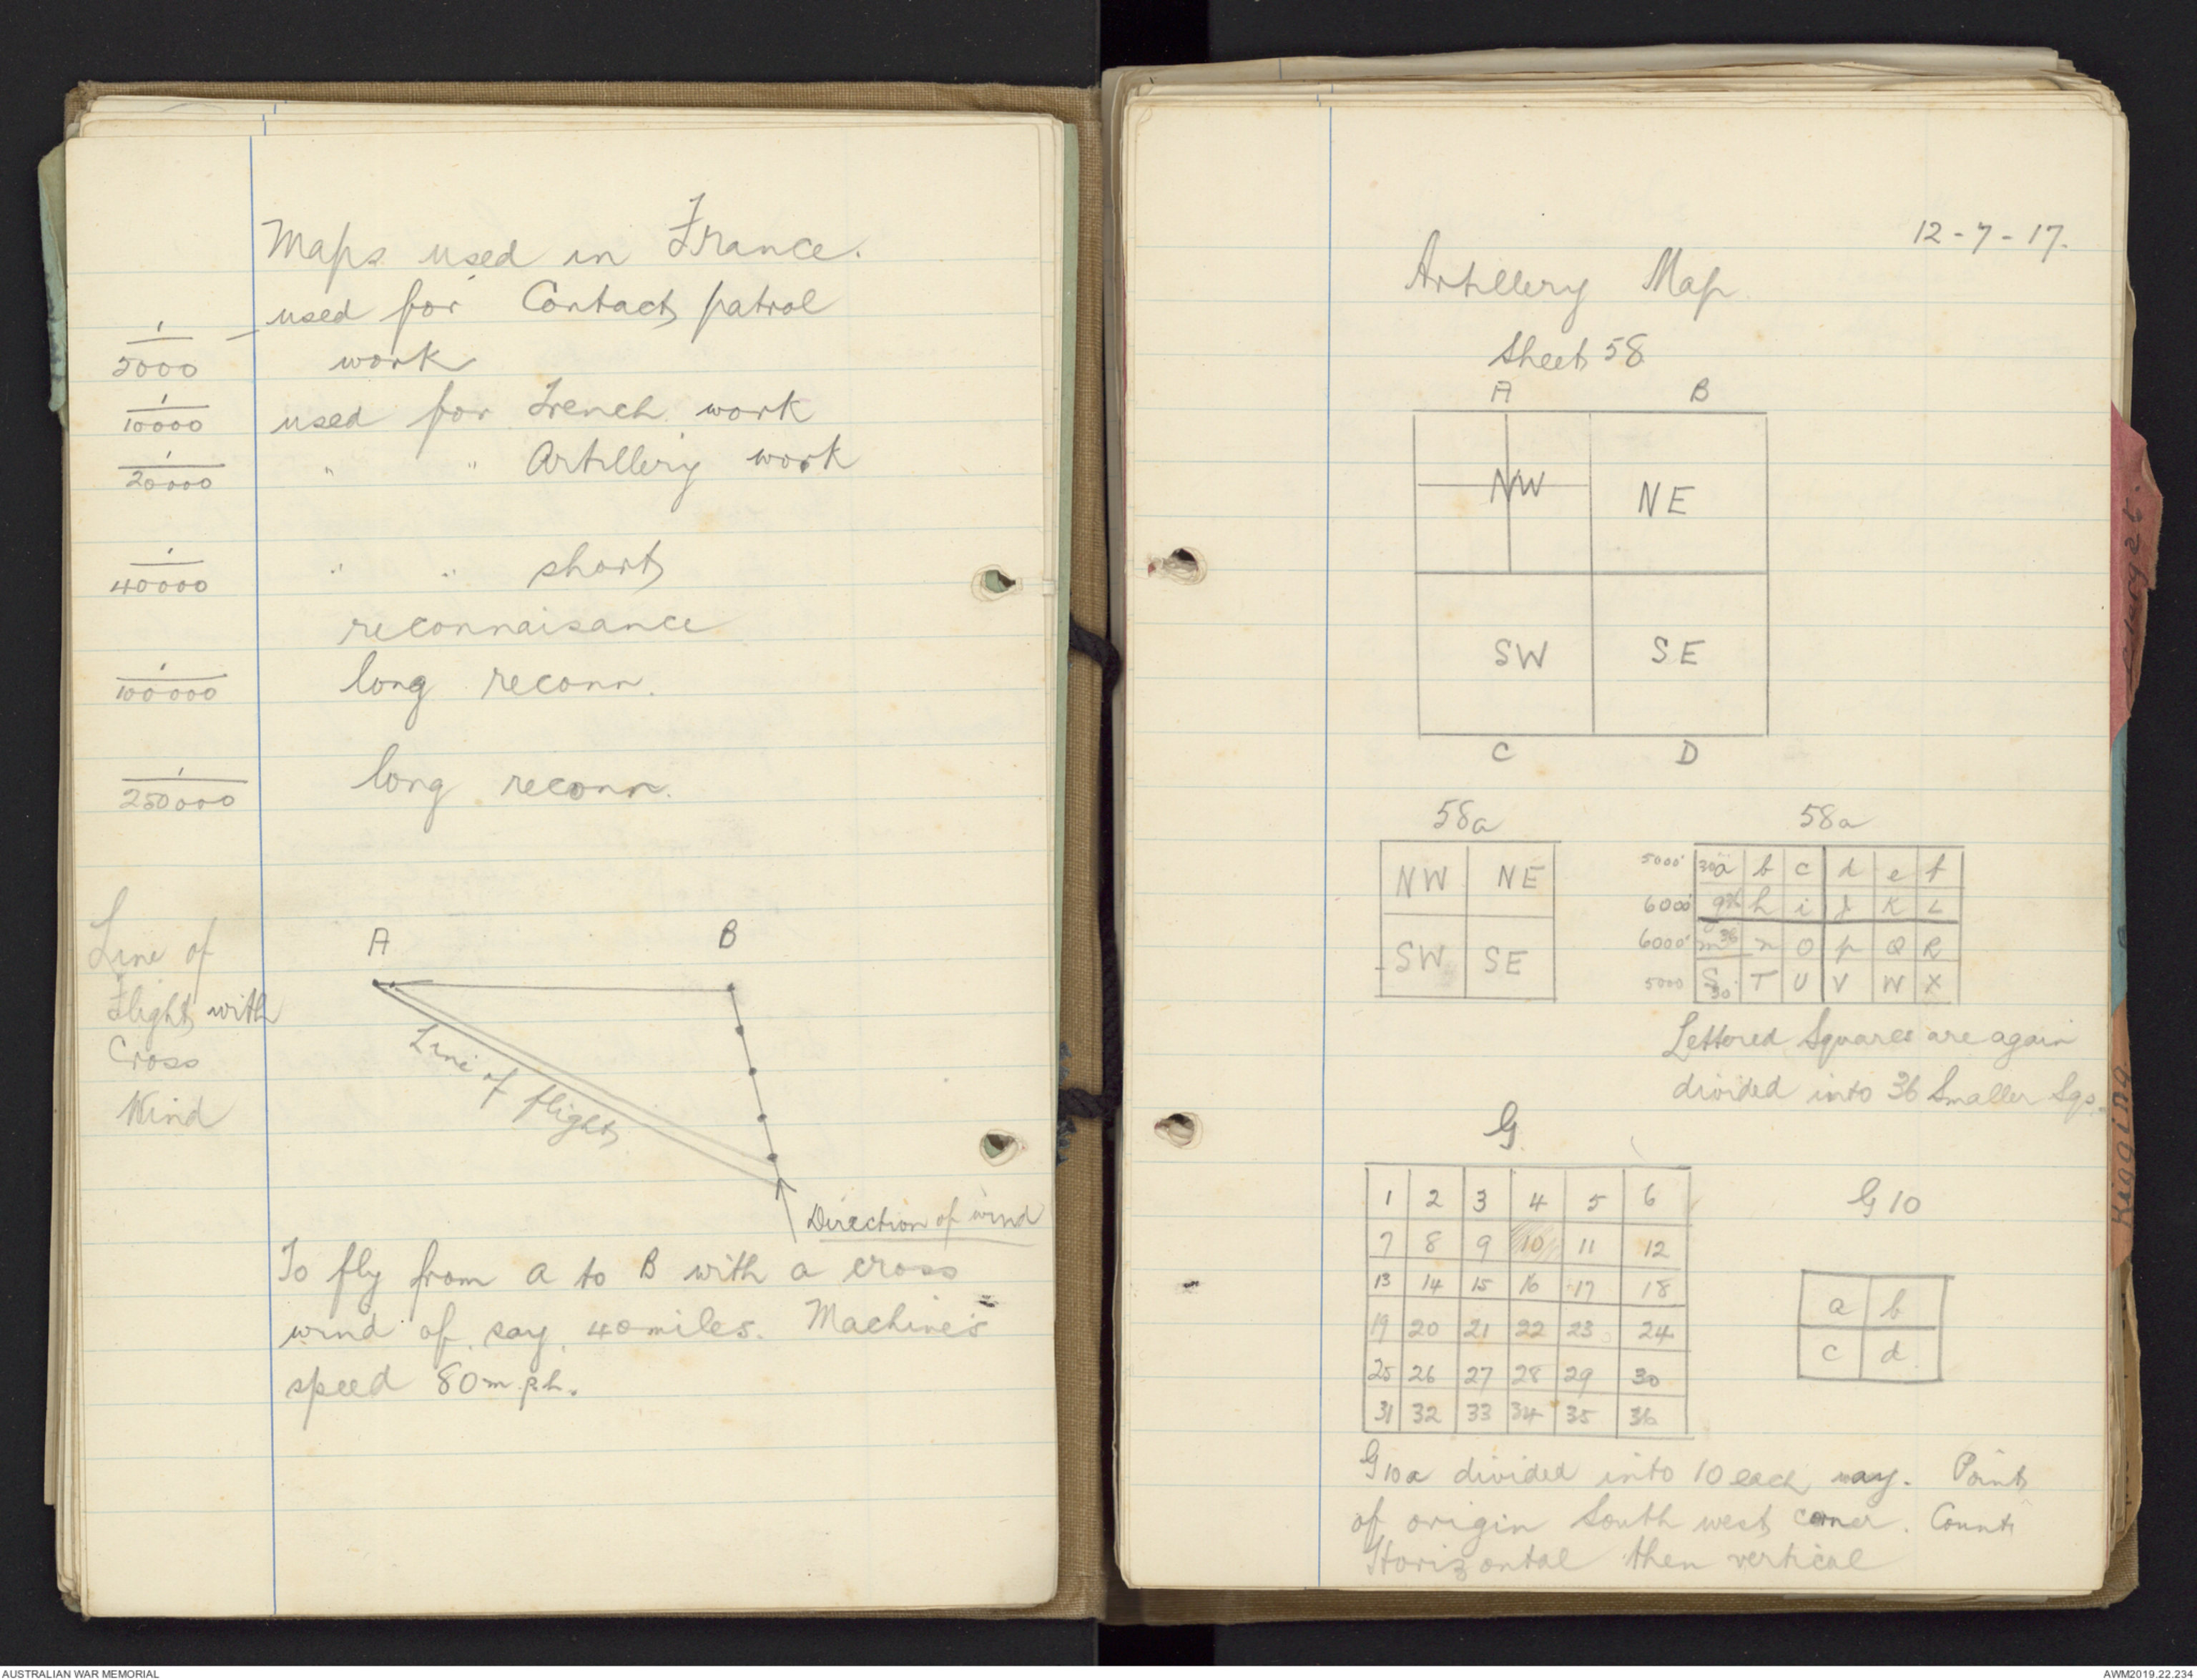 Maps used in France.
1/5000 - used for Contact patrol
work
1/10000 used for Trench work
1/20000 " " Artillery work
1/40000 " " short
reconnaisance
1/100000 long reconn.
1/250000 long reconn.
Line of
Flight with
Cross
Wind
A B
Line of flight
Direction of wind
To fly from A to B with a cross
wind of say 40 miles. Machine's
speed 80 m.p.h.
12-7-17.
Artillery Map
Sheet 58
A B
NW NE
SW SE
C D
58a
NW NE
SW SE
58a
5000' 30a b c d e f
6000' g36 h i J K L
6000' m36 n O p Q R
5000 S30 T U V W X
Lettered Squares are again
divided into 36 Smaller Sqs.
G
1 2 3 4 5 6
7 8 9 10 11 12
13 14 15 16 17 18
19 20 21 22 23 24
25 26 27 28 29 30
31 32 33 34 35 36
G 10
a b
c d
G10a divided into 10 each way. Point
of origin South west corner. Count
Horizontal then vertical
Rigging
AUSTRALIAN WAR MEMORIAL
AWM2019.22.234